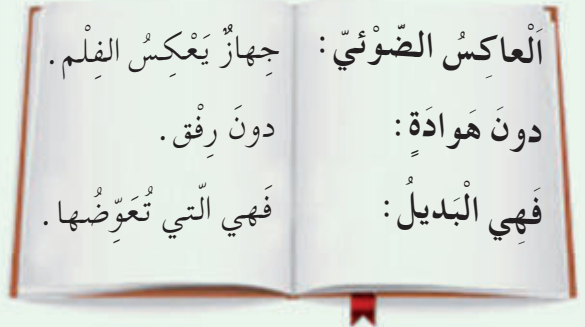 اَلْعاكِسُ الضّوْئيّ: جِهازٌ يَعْكِسُ الفِلْم.
دونَ هَوادَةٍ: دونَ رِفْق.
فَهِي الْبَديلُ: فَهي الّتي تُعَوِّضُها.